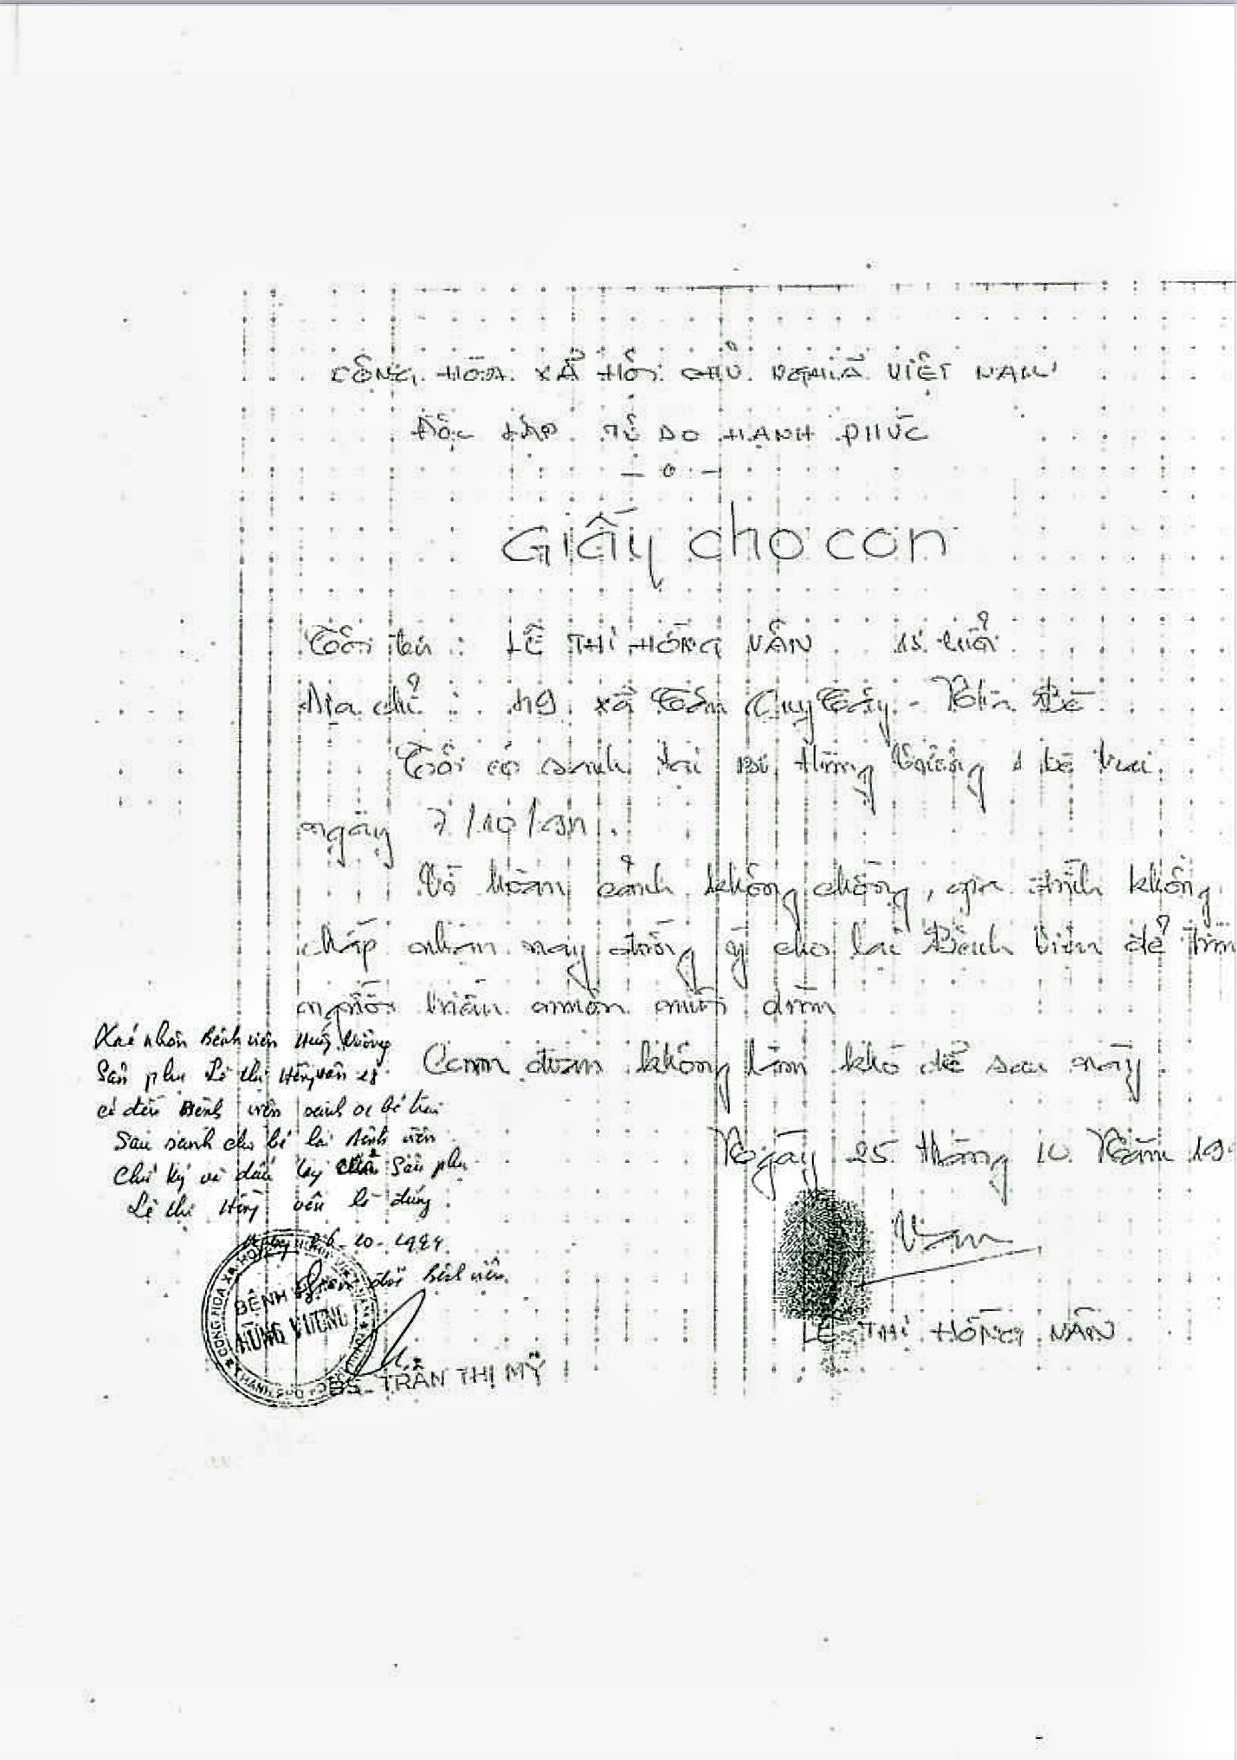 CỘNG HÒA XÃ HỘI CHỦ NGHĨA VIỆT NAM
ĐỘC LẬP TỰ DO HẠNH PHÚC
Giấy cho con
Tôi tên : LÊ THỊ HỒNG VÂN tuổi
Địa chỉ : xã Tân Quý Tây - Bè
Tôi có sanh tại BV. Hùng Vương 1 bé trai
ngày 7/10/
Vì hoàn cảnh không chồng, gia đình không
chấp nhận nay đồng ý cho lại Bệnh viện để tìm
người hiếm muộn nuôi dùm
Cam đoan không làm khó dễ sau này
Ngày 25 tháng 10 Năm 19
Vân
LÊ THỊ HỒNG VÂN
Xác nhận Bệnh viện Hùng Vương
Sản phụ Lê thị Hồng Vân
có đến Bệnh viện sanh 01 bé trai
Sau sanh cho bé lại bệnh viện
Chữ ký và dấu tay Sản phụ
Lê thị Hồng Vân là đúng
-10-1994
Bệnh viện
CỘNG HÒA XÃ HỘI CHỦ NGHĨA VIỆT NAM
BỆNH VIỆN
HÙNG VƯƠNG
THÀNH PHỐ HỒ CHÍ MINH
BS. TRẦN THỊ MỸ